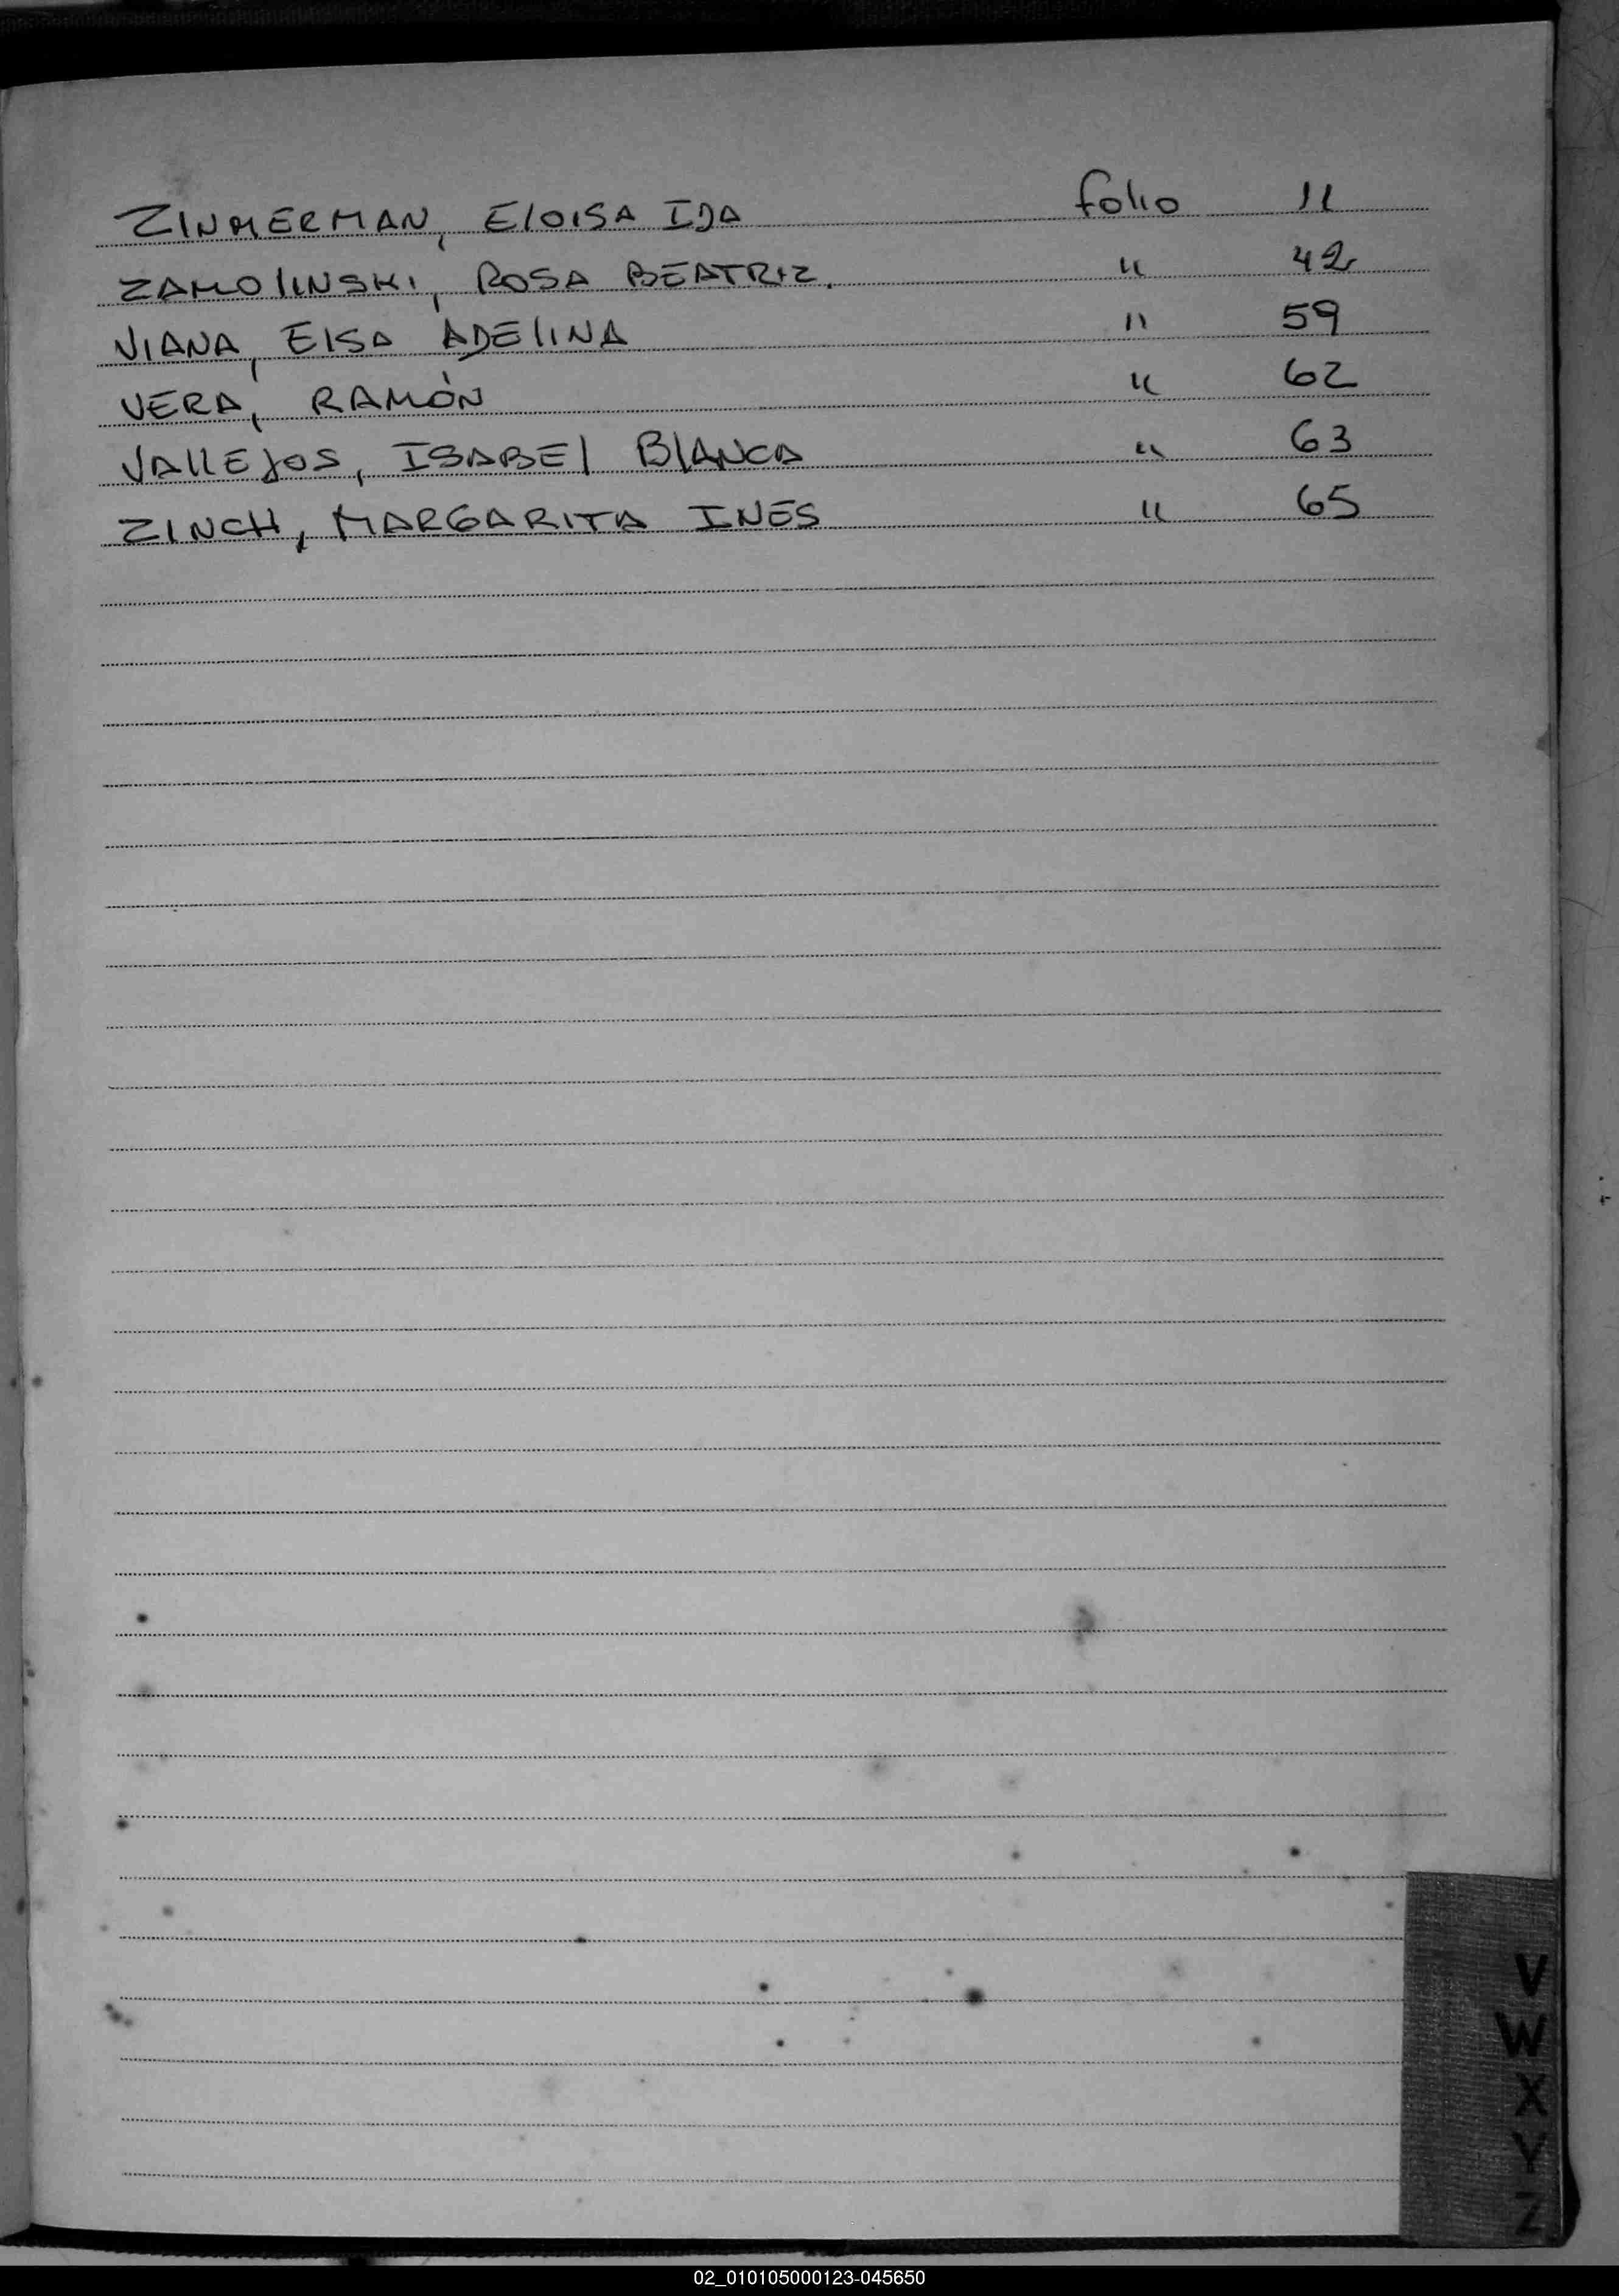 ZIMMERMAN, ELOISA IDA folio 11
ZAMOLINSKI, ROSA BEATRIZ. " 42
VIANA, ELSA ADELINA " 59
VERA, RAMÓN " 62
VALLEJOS, ISABEL BLANCA " 63
ZINCH, MARGARITA INES " 65
V
W
X
Y
Z
02_010105000123-045650